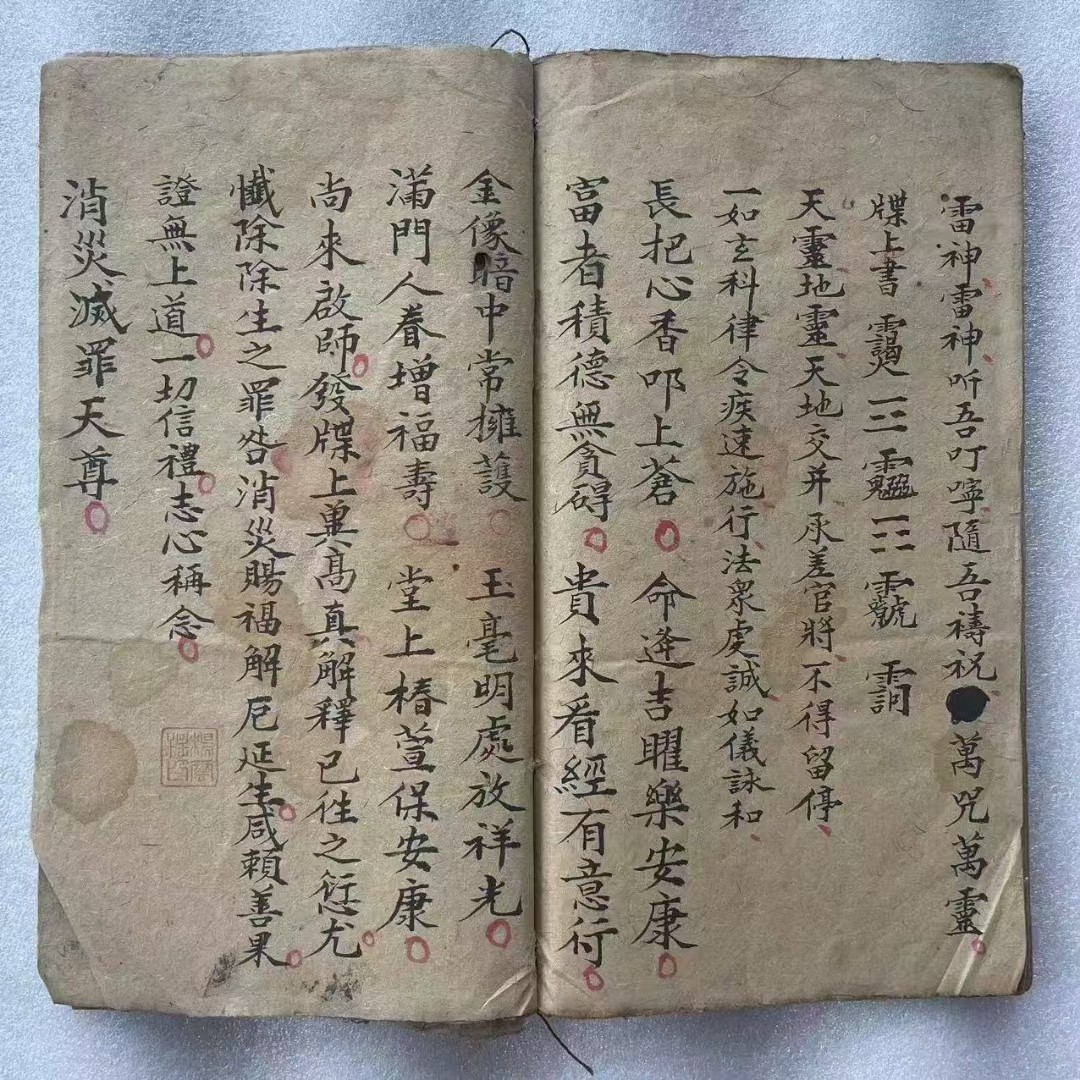 雷神雷神听吾叮嚀隨吾禱祝萬咒萬靈
牒上書
天靈地靈天地交并承差官将不得留停
一如玄科律令疾速施行法衆虔誠如儀詠和
長把心香叩上蒼命逢吉曜樂安康
富者積德無貪碍貴來看經有意行
金像暗中常擁護玉毫明處放祥光
滿門人眷增福壽堂上椿萱保安康
尚來啟師發牒上兾高真解釋已徃之愆尤
懺除除生之罪咎消災賜福解厄延生咸賴善果
證無上道一切信禮志心稱念
消災滅罪天尊